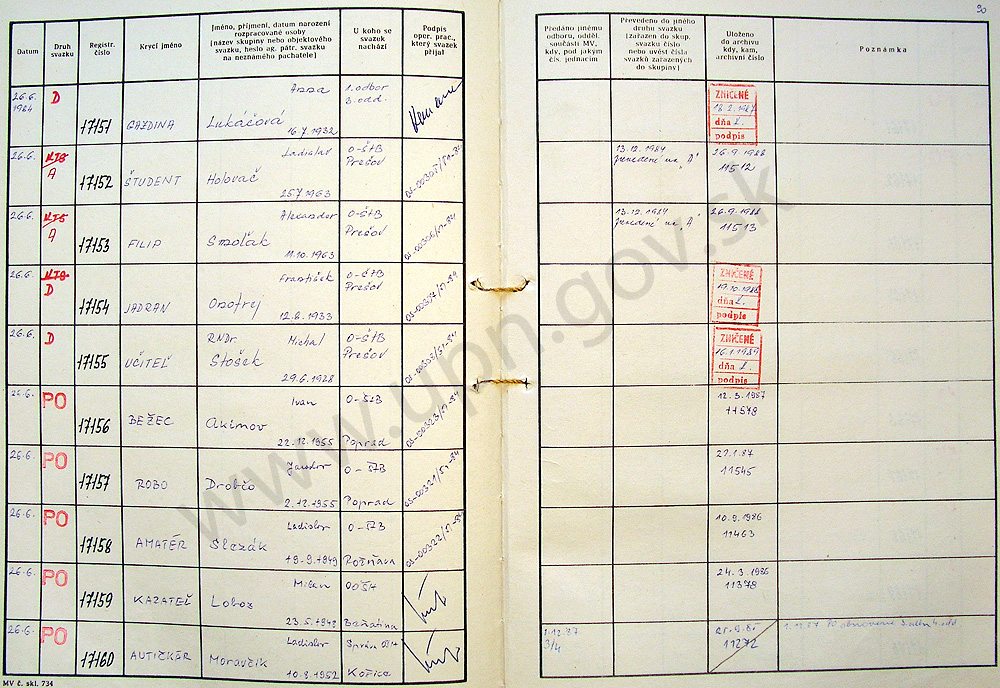 90
Datum
Druh
svazku
Registr.
číslo
Krycí jméno
Jméno, příjmení, datum narození
rozpracované osoby
[název skupiny nebo objektového
svazku, heslo ag. pátr. svazku
na neznámého pachatele]
U koho se
svazek
nachází
Podpis
oper. prac.,
který svazek
přijal
Předáno jinému
odboru, odděl.
součásti MV,
kdy, pod jakým
čís. jednacím
Převedeno do jiného
druhu svazku
[zařazen do skup.
svazku číslo
nebo uvést čísla
svazků zařazených
do skupiny]
Uloženo
do archivu
kdy, kam,
archivní číslo
Poznámka
26.6.
1984
D
17151
GAZDINA
Anna
Lukáčová
16.7.1932
1. odbor
3. odd.
ZNIČENÉ
18.2.1987
dňa
podpis
26.6.
NTS
A
17152
ŠTUDENT
Ladislav
Holovač
25.7.1963
O-ŠtB
Prešov
13.12.1984
prevedené na "A"
26.9.1988
11512
26.6.
NTS
A
17153
FILIP
Alexander
Smoľák
11.10.1963
O-ŠtB
Prešov
13.12.1984
prevedené na "A"
26.9.1988
11513
26.6.
NTS
D
17154
JADRAN
František
Onofrej
12.8.1933
O-ŠtB
Prešov
ZNIČENÉ
19.10.1988
dňa
podpis
26.6.
D
17155
UČITEĽ
RNDr. Michal
Stošek
29.6.1928
O-ŠtB
Prešov
ZNIČENÉ
16.1.1989
dňa
podpis
26.6.
PO
17156
BEŽEC
Ivan
Akimov
22.12.1955
O-ŠtB
Poprad
05-00323/51-84
12.3.1987
11578
26.6.
PO
17157
ROBO
Jaroslav
Drobčo
2.12.1955
O-ŠTB
Poprad
05-00321/51-84
27.1.87
11545
26.6.
PO
17158
AMATÉR
Ladislav
Slezák
19.9.1949
O-ŠTB
Rožňava
05-00322/51-84
10.9.1986
11463
26.6.
PO
17159
KAZATEĽ
Milan
Loboz
23.5.1942
24.3.1986
11378
26.6.
PO
17160
AUTIČKÁR
Ladislav
Moravčík
10.8.1952
Správa
Košice
1.12.87
3/4
25.9.85
11272
1.12.87
MV č. skl. 734
www.upn.gov.sk